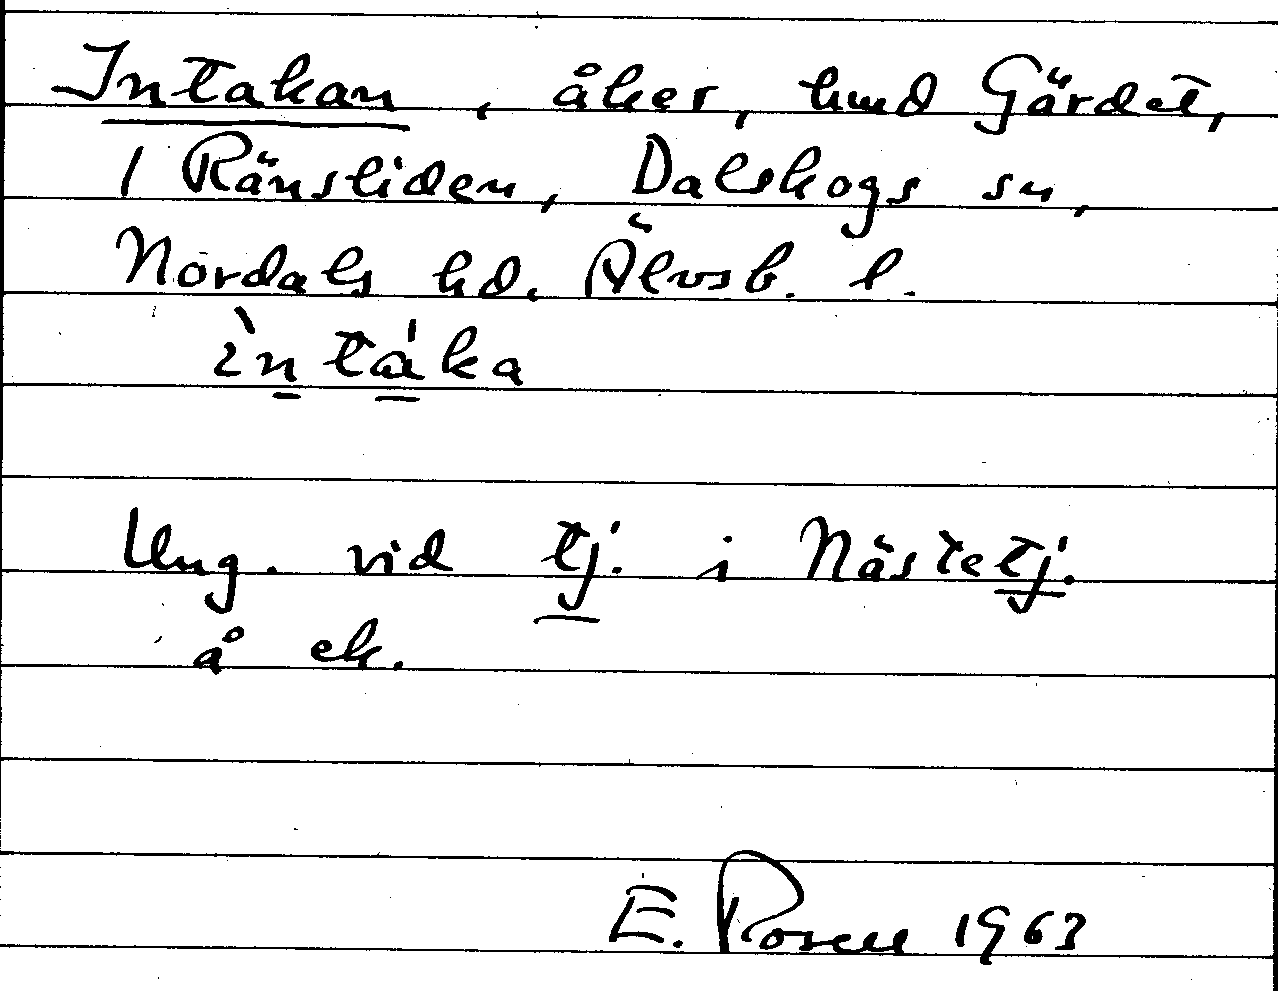 Intakan, åker, hmd Gärdet,
1 Ränsliden, Dalskogs sn,
Nordals hd. Älvsb. l.
ìntáka
Ung. vid tj. i Nästetj.
å ek.
E. Rosen 1963